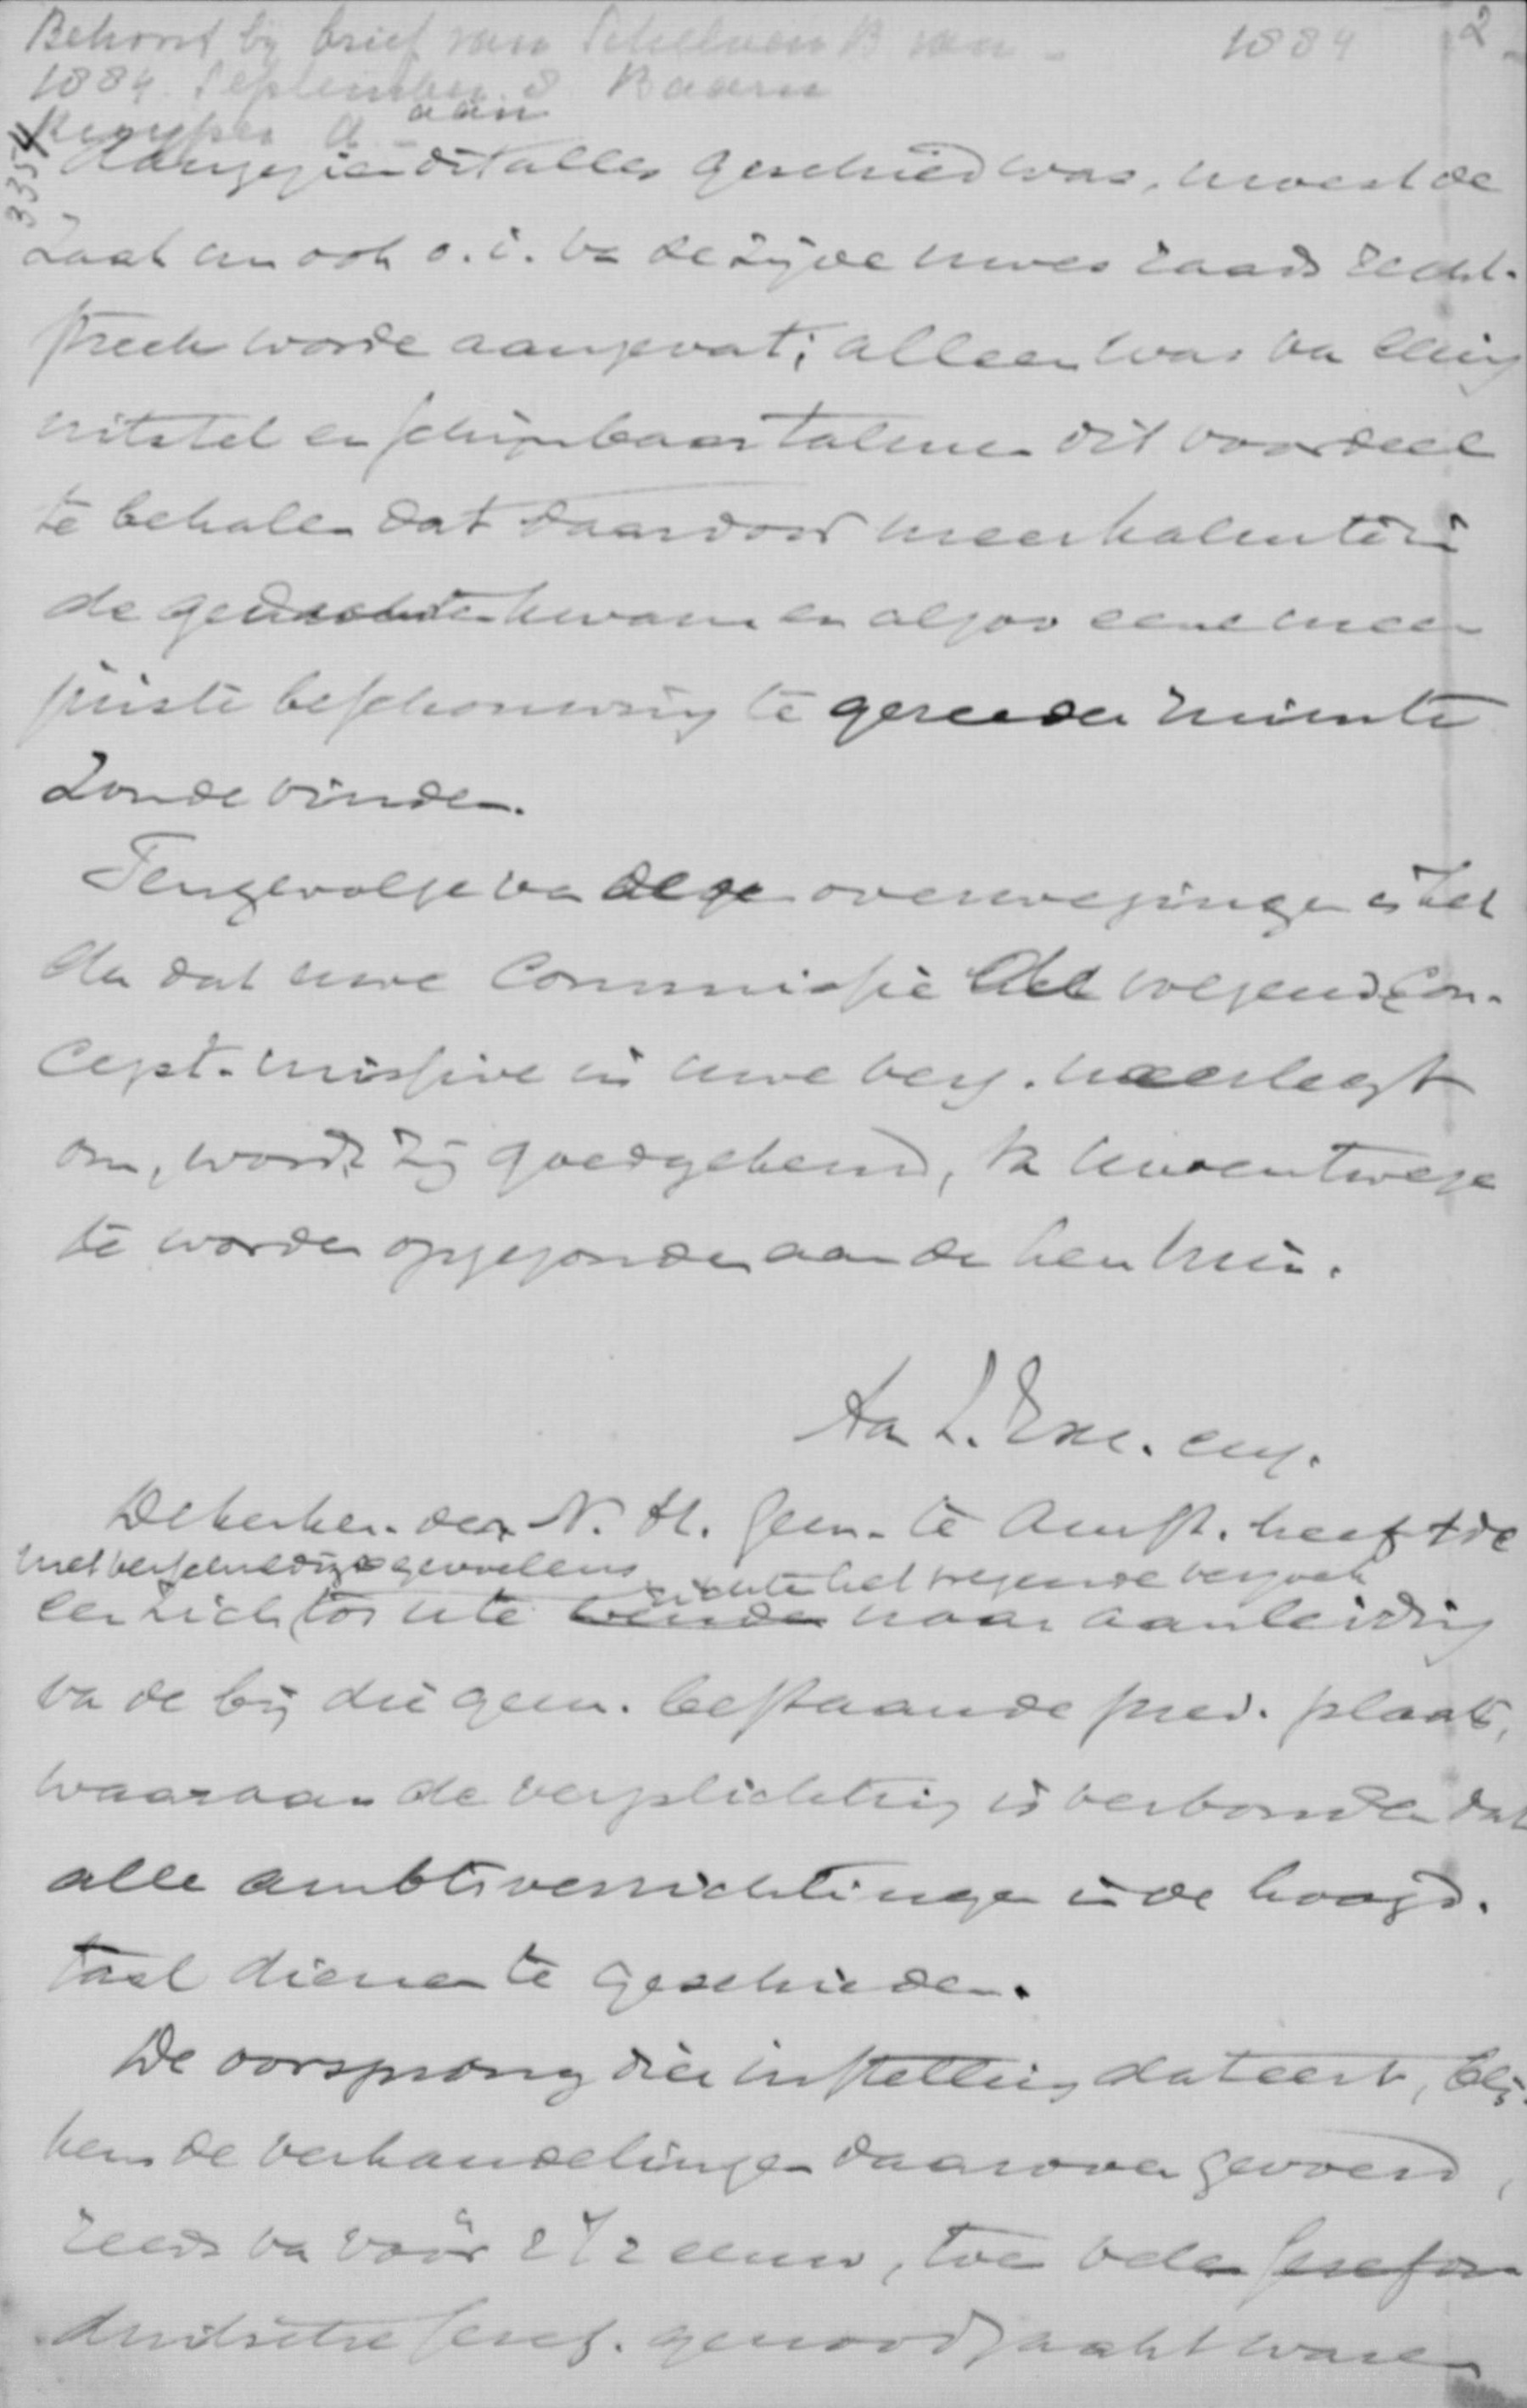 Behoort bij brief van Schelven B van - 1884 2
1884 September 8 Baarn
aan
Kuyper A -
3354
Aangezien dit alles geschied was, moest de
zaak nu ook o.i. va de zijde uwes raads recht-
streek worde aangevat; alleen was va eenig
uitstel en schijnbaar talme dit voordeel
te behale dat daardoor meer kalmte in
de gedachte kwam en alzoo eene meer
juiste beschouwing te gereeder ruimte
zoude vinden.
Tengevolge va deze overweginge is het
da dat uwe Commissie volgend con-
cept-missive in uwe verg. neerlegt
om, wordt zij goedgekeurd, va uwentwege
te worde opgezonde aan de hee Min.
Aa Z. Exc. enz.
De kerker. der N. H. Gem. te Amst. heeft de
met verschuldigde gevoelens richte het volgende verzoek
eer zich tot u te wende naar aanleiding
va de bij die gem. bestaande pred. plaats,
waaraan de verplichting is verbonde dat
alle ambtsverrichtinge in de hoogd.
taal diene te geschieden.
De oorsprong dier instelling dateert, blij-
kens de verhandelinge daarover gevoerd,
reeds va vóór 2 1/2 eeuw, toe vele
duitsche geref. genoodzaakt ware